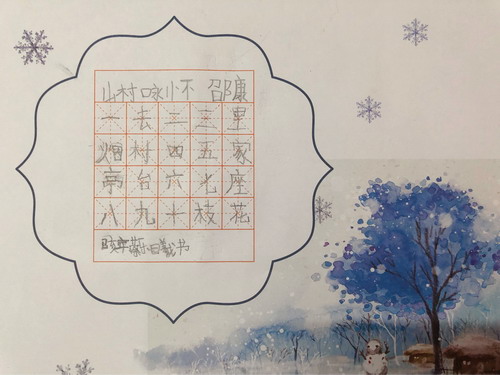 山村咏怀 邵康
一去二三里
烟村四五家
亭台六七座
八九十枝花
书